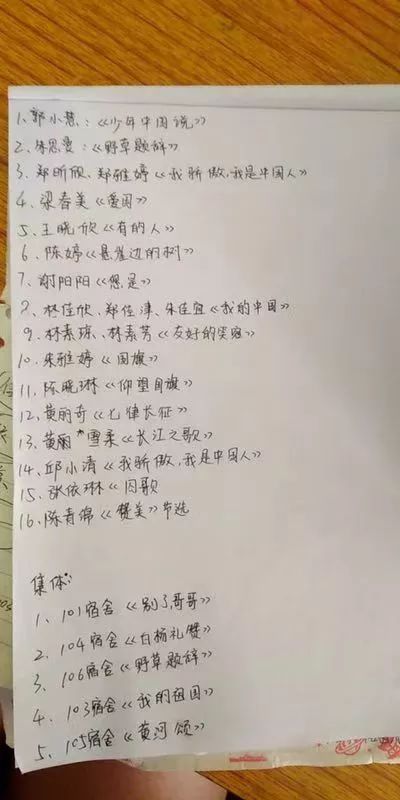 1、郭小慧：《少年中国说》
2、朱思旻：《野草题辞》
3、郑昕欣、郑雅婷《我骄傲,我是中国人》
4、梁春美《爱国》
5、王晓欣《有的人》
6、陈婷《悬崖边的树》
7、谢阳阳《您是》
8、林佳欣、郑佳津、朱佳宜《我的中国》
9、林素琼、林素芳《友好的笑容》
10、朱雅婷《国旗》
11、陈晓琳《仰望国旗》
12、黄丽奇《七律长征》
13、黄 雪柔《长江之歌》
14、邱小清《我骄傲,我是中国人》
15、张依琳《囚歌》
16、陈青锦《赞美》节选
集体:
1、101宿舍《别了哥哥》
2、104宿舍《白杨礼赞》
3、106宿舍《野草题辞》
4、103宿舍《我的祖国》
5、105宿舍《黄河颂》